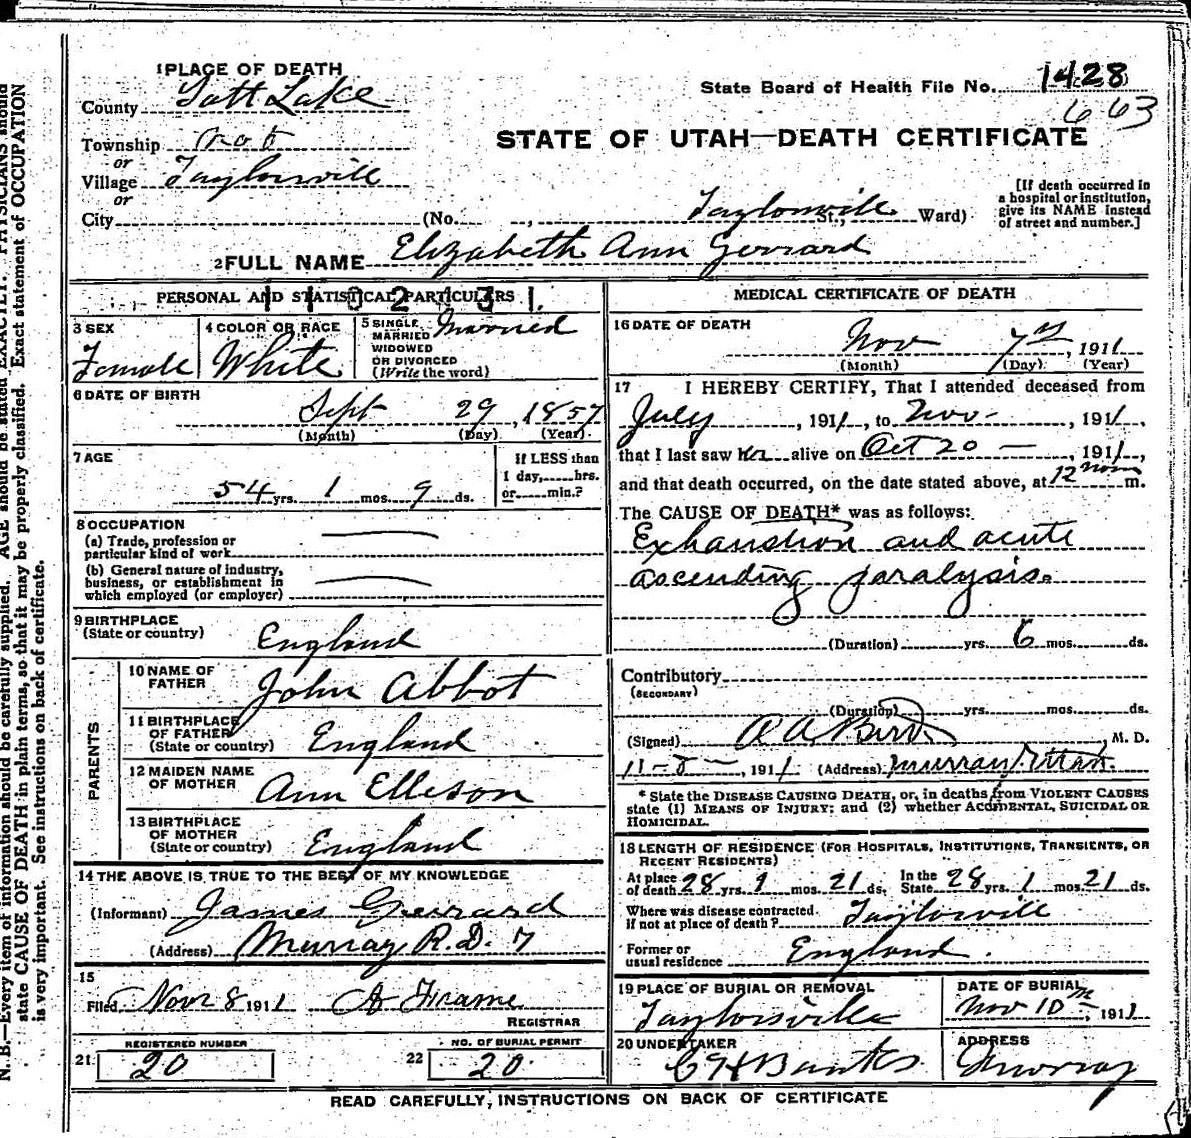 1 PLACE OF DEATH
County Salt Lake
Township No 6
or
Village Taylorsvill
or
City (No. , Taylorsvill St., Ward)
State Board of Health File No. 1428
663
STATE OF UTAH—DEATH CERTIFICATE
[If death occurred in
a hospital or institution,
give its NAME instead
of street and number.]
2 FULL NAME Elizabeth Ann Gerrard
PERSONAL AND STATISTICAL PARTICULARS
3 SEX
Female
4 COLOR OR RACE
White
5 SINGLE
MARRIED
WIDOWED
OR DIVORCED
(Write the word)
Married
6 DATE OF BIRTH
Sept 29, 1857
(Month) (Day) (Year)
7 AGE
54 yrs. 1 mos. 9 ds.
If LESS than
1 day,.....hrs.
or......min.?
8 OCCUPATION
(a) Trade, profession or
particular kind of work
(b) General nature of industry,
business, or establishment in
which employed (or employer)
9 BIRTHPLACE
(State or country)
England
PARENTS
10 NAME OF
FATHER
John Abbot
11 BIRTHPLACE
OF FATHER
(State or country)
England
12 MAIDEN NAME
OF MOTHER
Ann Elleson
13 BIRTHPLACE
OF MOTHER
(State or country)
England
14 THE ABOVE IS TRUE TO THE BEST OF MY KNOWLEDGE
(Informant) James Gerrard
(Address) Murray R.D. 7
15
Filed Nov 8 1911 Frame
REGISTRAR
REGISTERED NUMBER
21 20
NO. OF BURIAL PERMIT
22 20
MEDICAL CERTIFICATE OF DEATH
16 DATE OF DEATH
Nov 7th, 1911
(Month) (Day) (Year)
17 I HEREBY CERTIFY, That I attended deceased from
July, 1911, to Nov-, 1911,
that I last saw her alive on Oct 20 —, 1911,
and that death occurred, on the date stated above, at 12 noon m.
The CAUSE OF DEATH* was as follows:
Exhaustion and acute
ascending paralysis.
(Duration) yrs. 6 mos. ds.
Contributory
(SECONDARY)
(Duration) yrs. mos. ds.
(Signed) , M. D.
11-8-, 1911 (Address) Murray, Utah.
* State the DISEASE CAUSING DEATH, or, in deaths from VIOLENT CAUSES
state (1) MEANS OF INJURY; and (2) whether ACCIDENTAL, SUICIDAL OR
HOMICIDAL.
18 LENGTH OF RESIDENCE (FOR HOSPITALS, INSTITUTIONS, TRANSIENTS, OR
RECENT RESIDENTS)
At place
of death 28 yrs. 9 mos. 21 ds.
In the
State 28 yrs. 1 mos. 21 ds.
Where was disease contracted
if not at place of death? Taylorsvill
Former or
usual residence England.
19 PLACE OF BURIAL OR REMOVAL
Taylorsville
DATE OF BURIAL
Nov 10th, 1911
20 UNDERTAKER
ADDRESS
Murray
READ CAREFULLY, INSTRUCTIONS ON BACK OF CERTIFICATE
N. B.—Every item of information should be carefully supplied. AGE should be stated EXACTLY. PHYSICIANS should
state CAUSE OF DEATH in plain terms, so that it may be properly classified. Exact statement of OCCUPATION
is very important. See instructions on back of certificate.